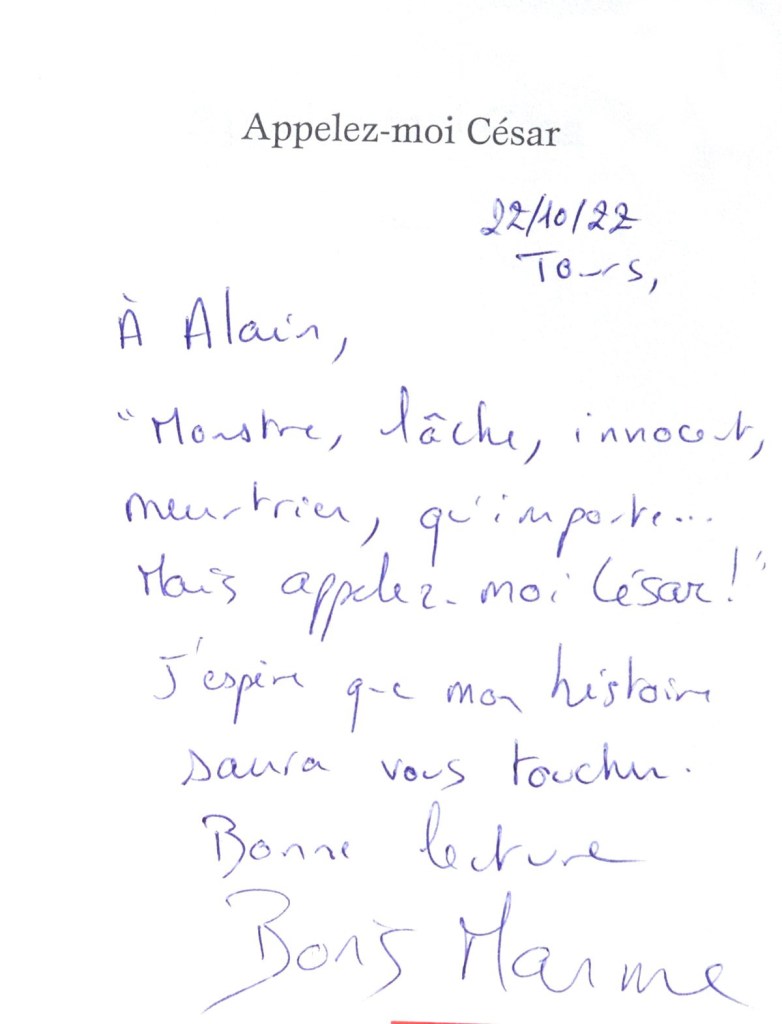 Appelez-moi César
22/10/22
Tours,
À Alain,
"Monstre, lâche, innocent,
meurtrier, qu'importe...
Mais appelez-moi César!"
J'espère que mon histoire
saura vous toucher.
Bonne lecture
Boris Marme